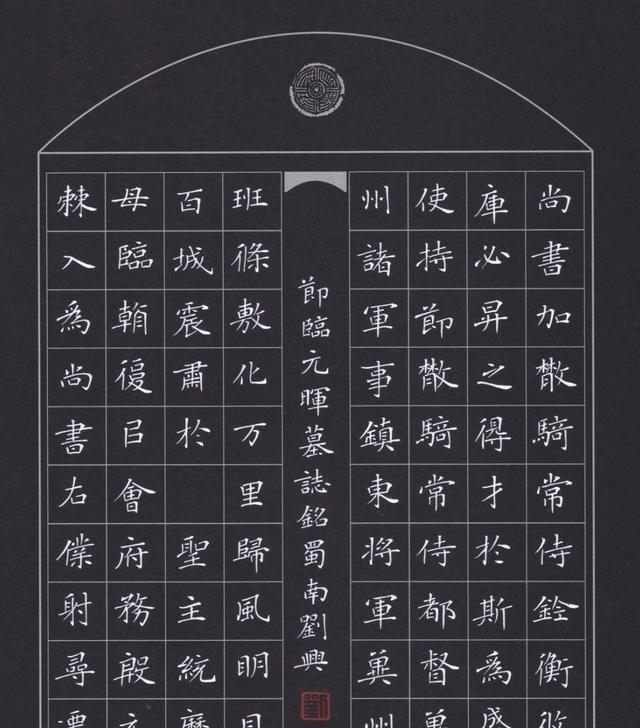 尚書加散騎常侍銓衡
庫必昇之得才於斯爲
使持節散騎常侍都督
州諸軍事鎮東將軍冀州
節臨元暉墓誌銘蜀南劉興
班條敷化万里歸風明
百城震肅於聖主統
母臨復㠯會府務殷
棘入爲尚書右僕射尋